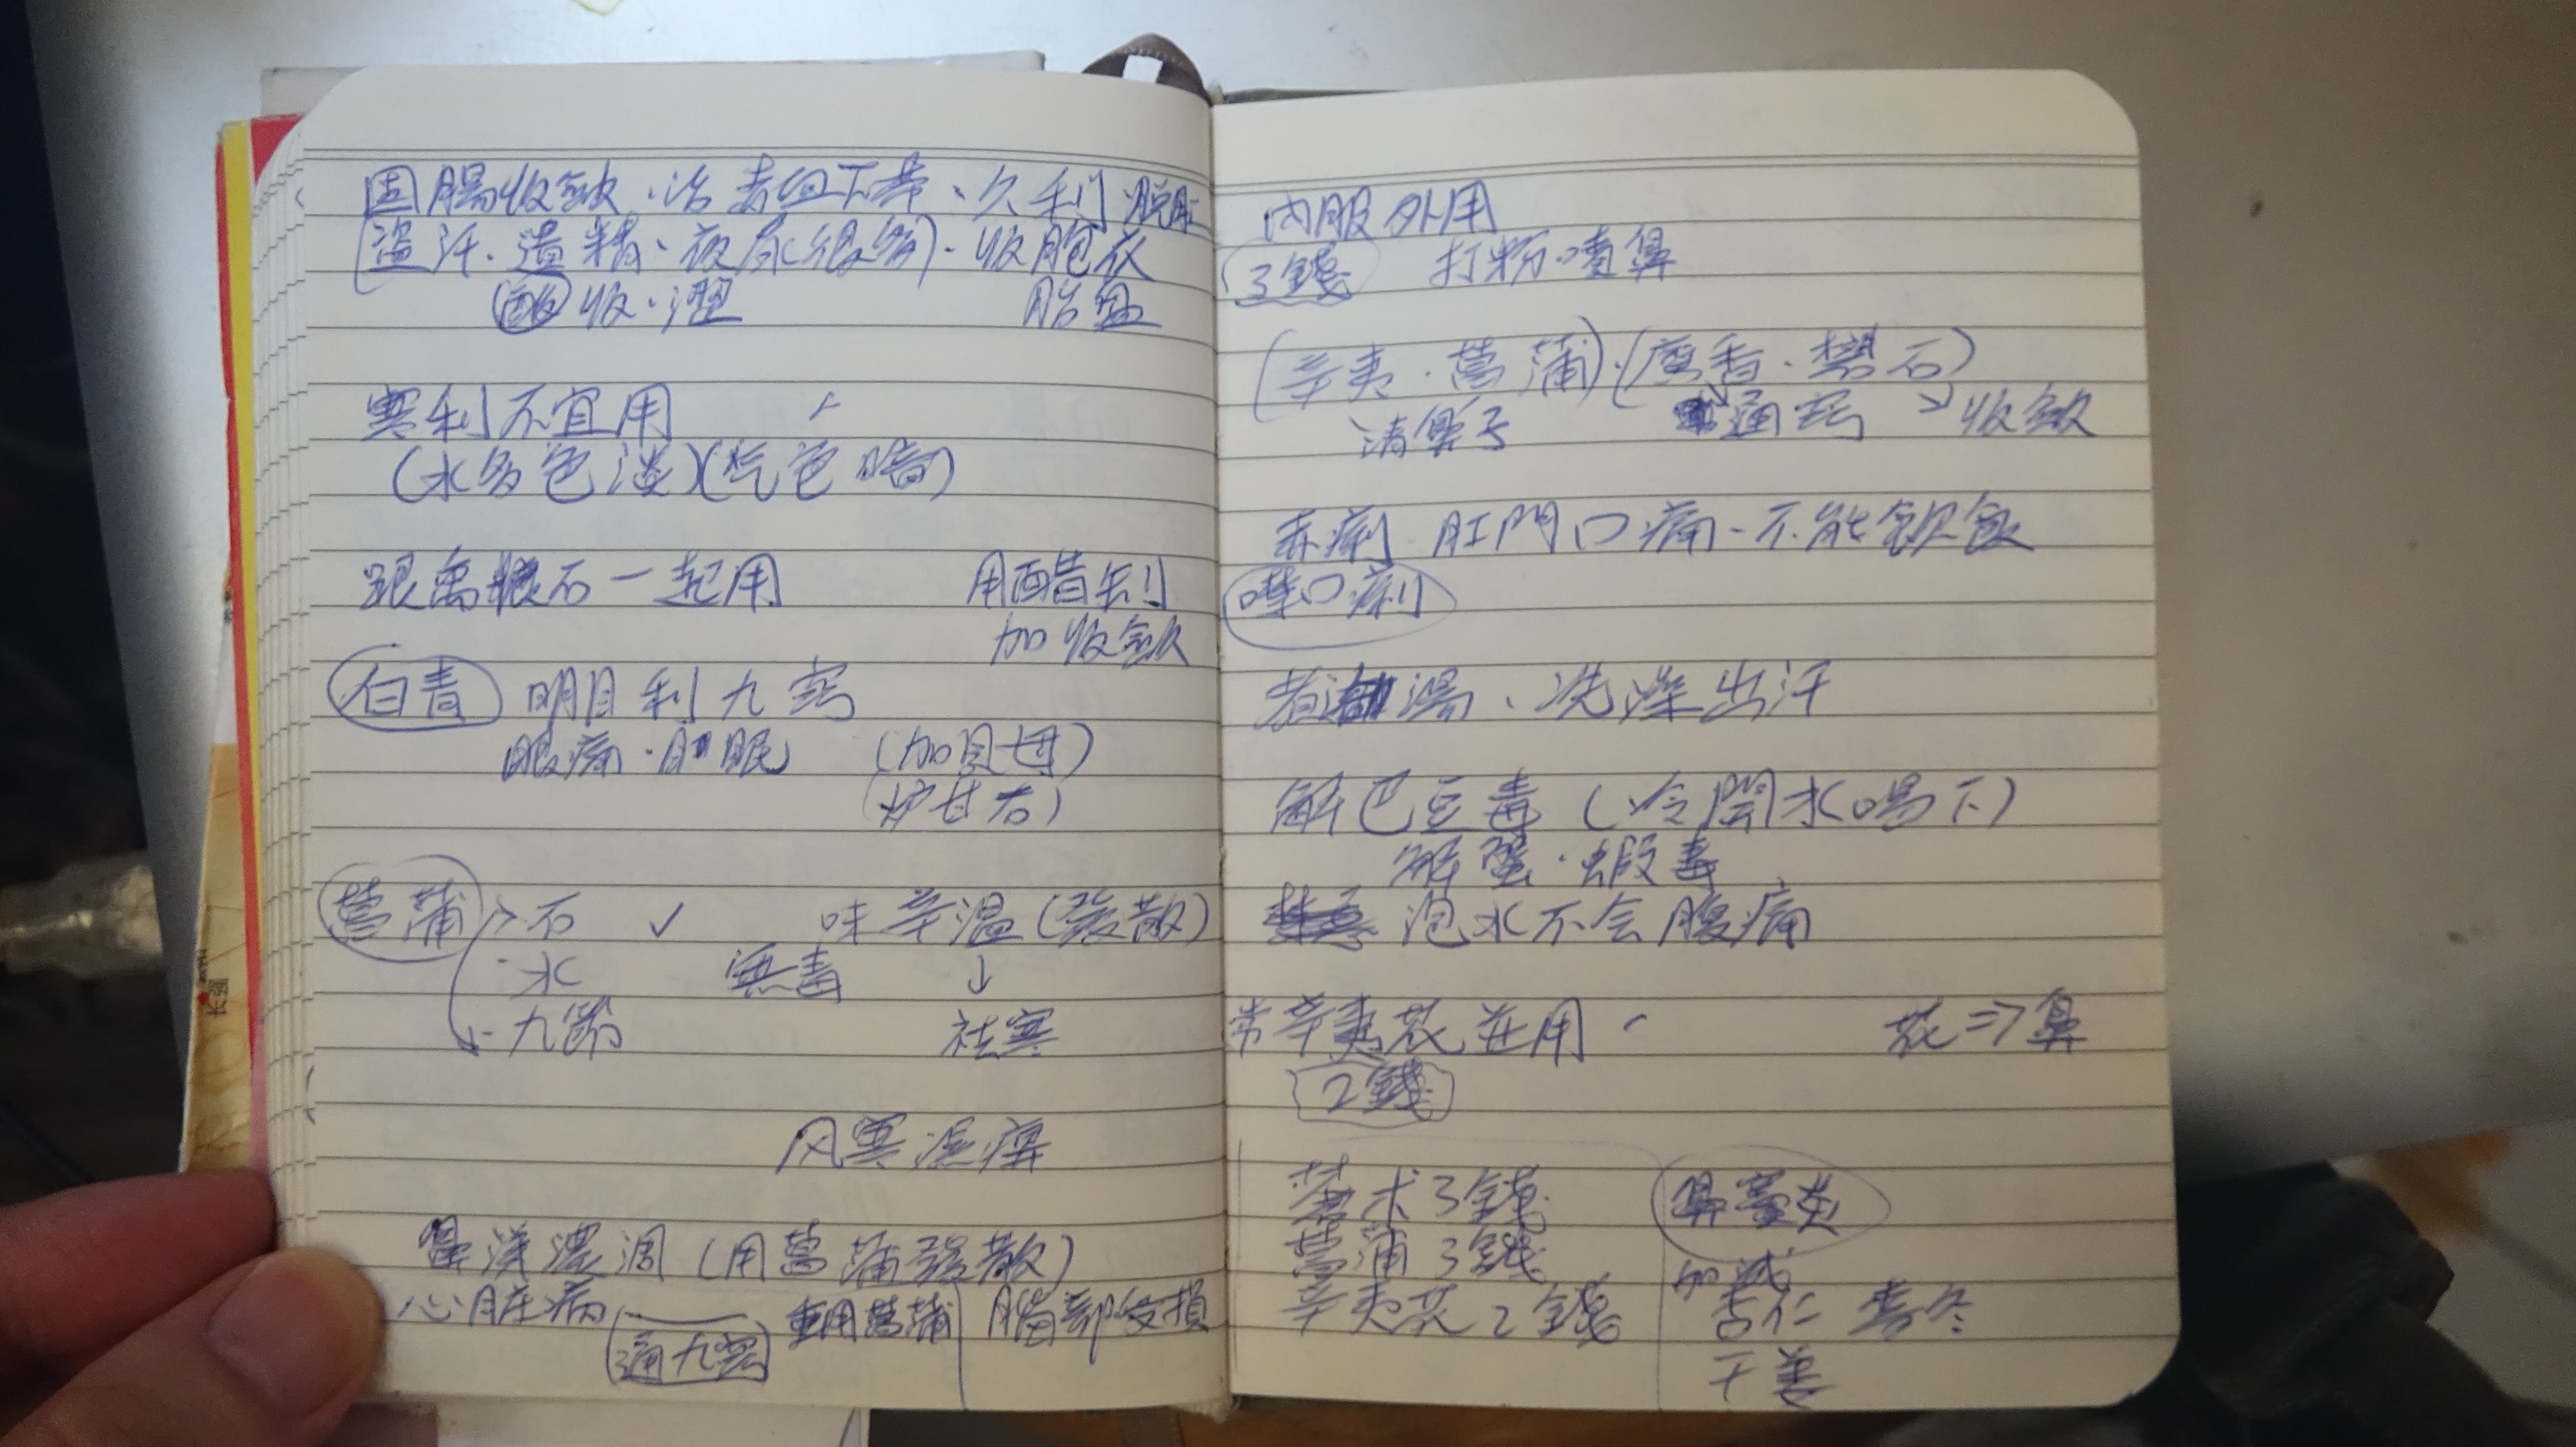 固腸收斂.治赤白下帶、久利 脫肛
盜汗.遺精、夜尿(很多).收胞衣
酸 收.澀 胎盤
寒利不宜用
(水多色淡)(气色暗)
跟禹糧石一起用 用醋制
加收斂
白青 明目利九竅
眼痛. 眼 (加貝母)
(炉甘石)
菖蒲 石 ✓ 味辛溫(發散)
水 無毒 ↓
九節 祛寒
风寒濕痺
鼻涕濃涸(用菖蒲發散)
心脏病 重用菖蒲 腦部受損
通九竅
內服 外用
3錢 打粉噴鼻
(辛夷.菖蒲).(麝香.礬石)
清鼻子 通竅 → 收斂
赤痢 肛門口痛、不能飲食
噤口痢
煮湯、洗澡出汗
解巴豆毒(冷開水喝下)
解蟹.蝦毒
泡水不会腹痛
常辛夷花並用 花⇒鼻
2錢
苍术3錢 鼻竇炎
菖蒲3錢 加減
辛夷花2錢 杏仁 麦冬
干姜
长强